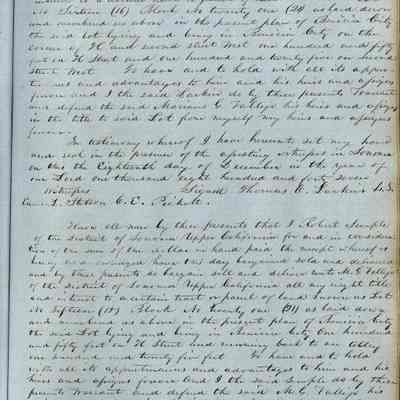 No Sixteen (16) Block No twenty one (21) as laid down
and numbered as above in the present plan of Benicia City
the said Lot lying and being in Benicia City on the
corner of H and second Street West one hundred and fifty
feet on H Street and one hundred and twenty five on Second
Street West To have and to hold with all its appur
tenances and advantages to him and his heirs and assigns
forever And I the said Larkin do by these presents Warrant
and defend the said Mariano G. Vallejo his heirs and assigns
in the title to said Lot from myself my heirs and assigns
forever.
In testimony whereof I have hereunto set my hand
and seal in the presence of the attesting witnesses in Sonoma
on this the Eighteenth day of December in the year of
our Lord one thousand eight hundred and forty seven
Witnesses Signed Thomas O. Larkin L.S.
L. Stetson C. E. Pickett.
Know all men by these presents that I Robert Semple
of the District of Sonoma Upper California for and in considera
tion of the sum of One dollar in hand paid the receipt whereof is
hereby acknowledged have this day bargained sold and delivered
and by these presents do bargain sell and deliver unto M. G. Vallejo
of the District of Sonoma Upper California all my right title
and interest to a certain tract or parcel of land known as Lot
No Fifteen (15) Block No twenty one (21) as laid down
and numbered as above in the present plan of Benicia City
the said Lot lying and being in Benicia City One hundred
and fifty feet on H Street and running back to an alley
one hundred and twenty five feet To have and to hold
with all its appurtenances and advantages to him and his
heirs and assigns forever And I the said Semple do by these
presents Warrant and defend the said M. G. Vallejo his